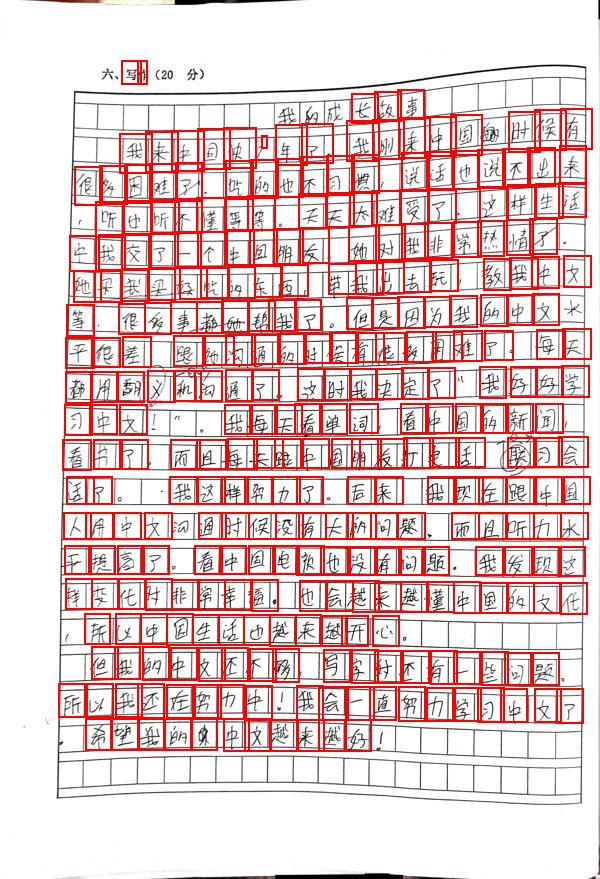 六、写作(20 分)
我的成长故事
我来中国快1年了。我刚来中国的时候有
很多困难了。吃的也不习惯，说话也说不出来
，听也听不懂等等。天天太难受了。这样生活
中我交了一个中国朋友，她对我非常热情了。
她买我买好吃的东西，带我出去玩，教我中文
等，很多事都她帮我了。但是因为我的中文水
平很差，跟她沟通的时候有很多困难了。每天
都用翻义和沟通了。这时我决定了“我好好学
习中文！”。我每天看单词，看中国的新闻，
看书了。而且每天跟中国朋友打电话 练习会
话了。 我这样努力了。后来 我现在跟中国
人用中文沟通时候没有大的问题，而且听力水
平提高了。看中国电视也没有问题。我发现这
样变化对非常幸福。也会越来越懂中国的文化
，所以中国生活也越来越开心。
但我的中文还不够，写字时还有一些问题。
所以我还在努力中！我会一直努力学习中文了
。希望我的中文越来越好！